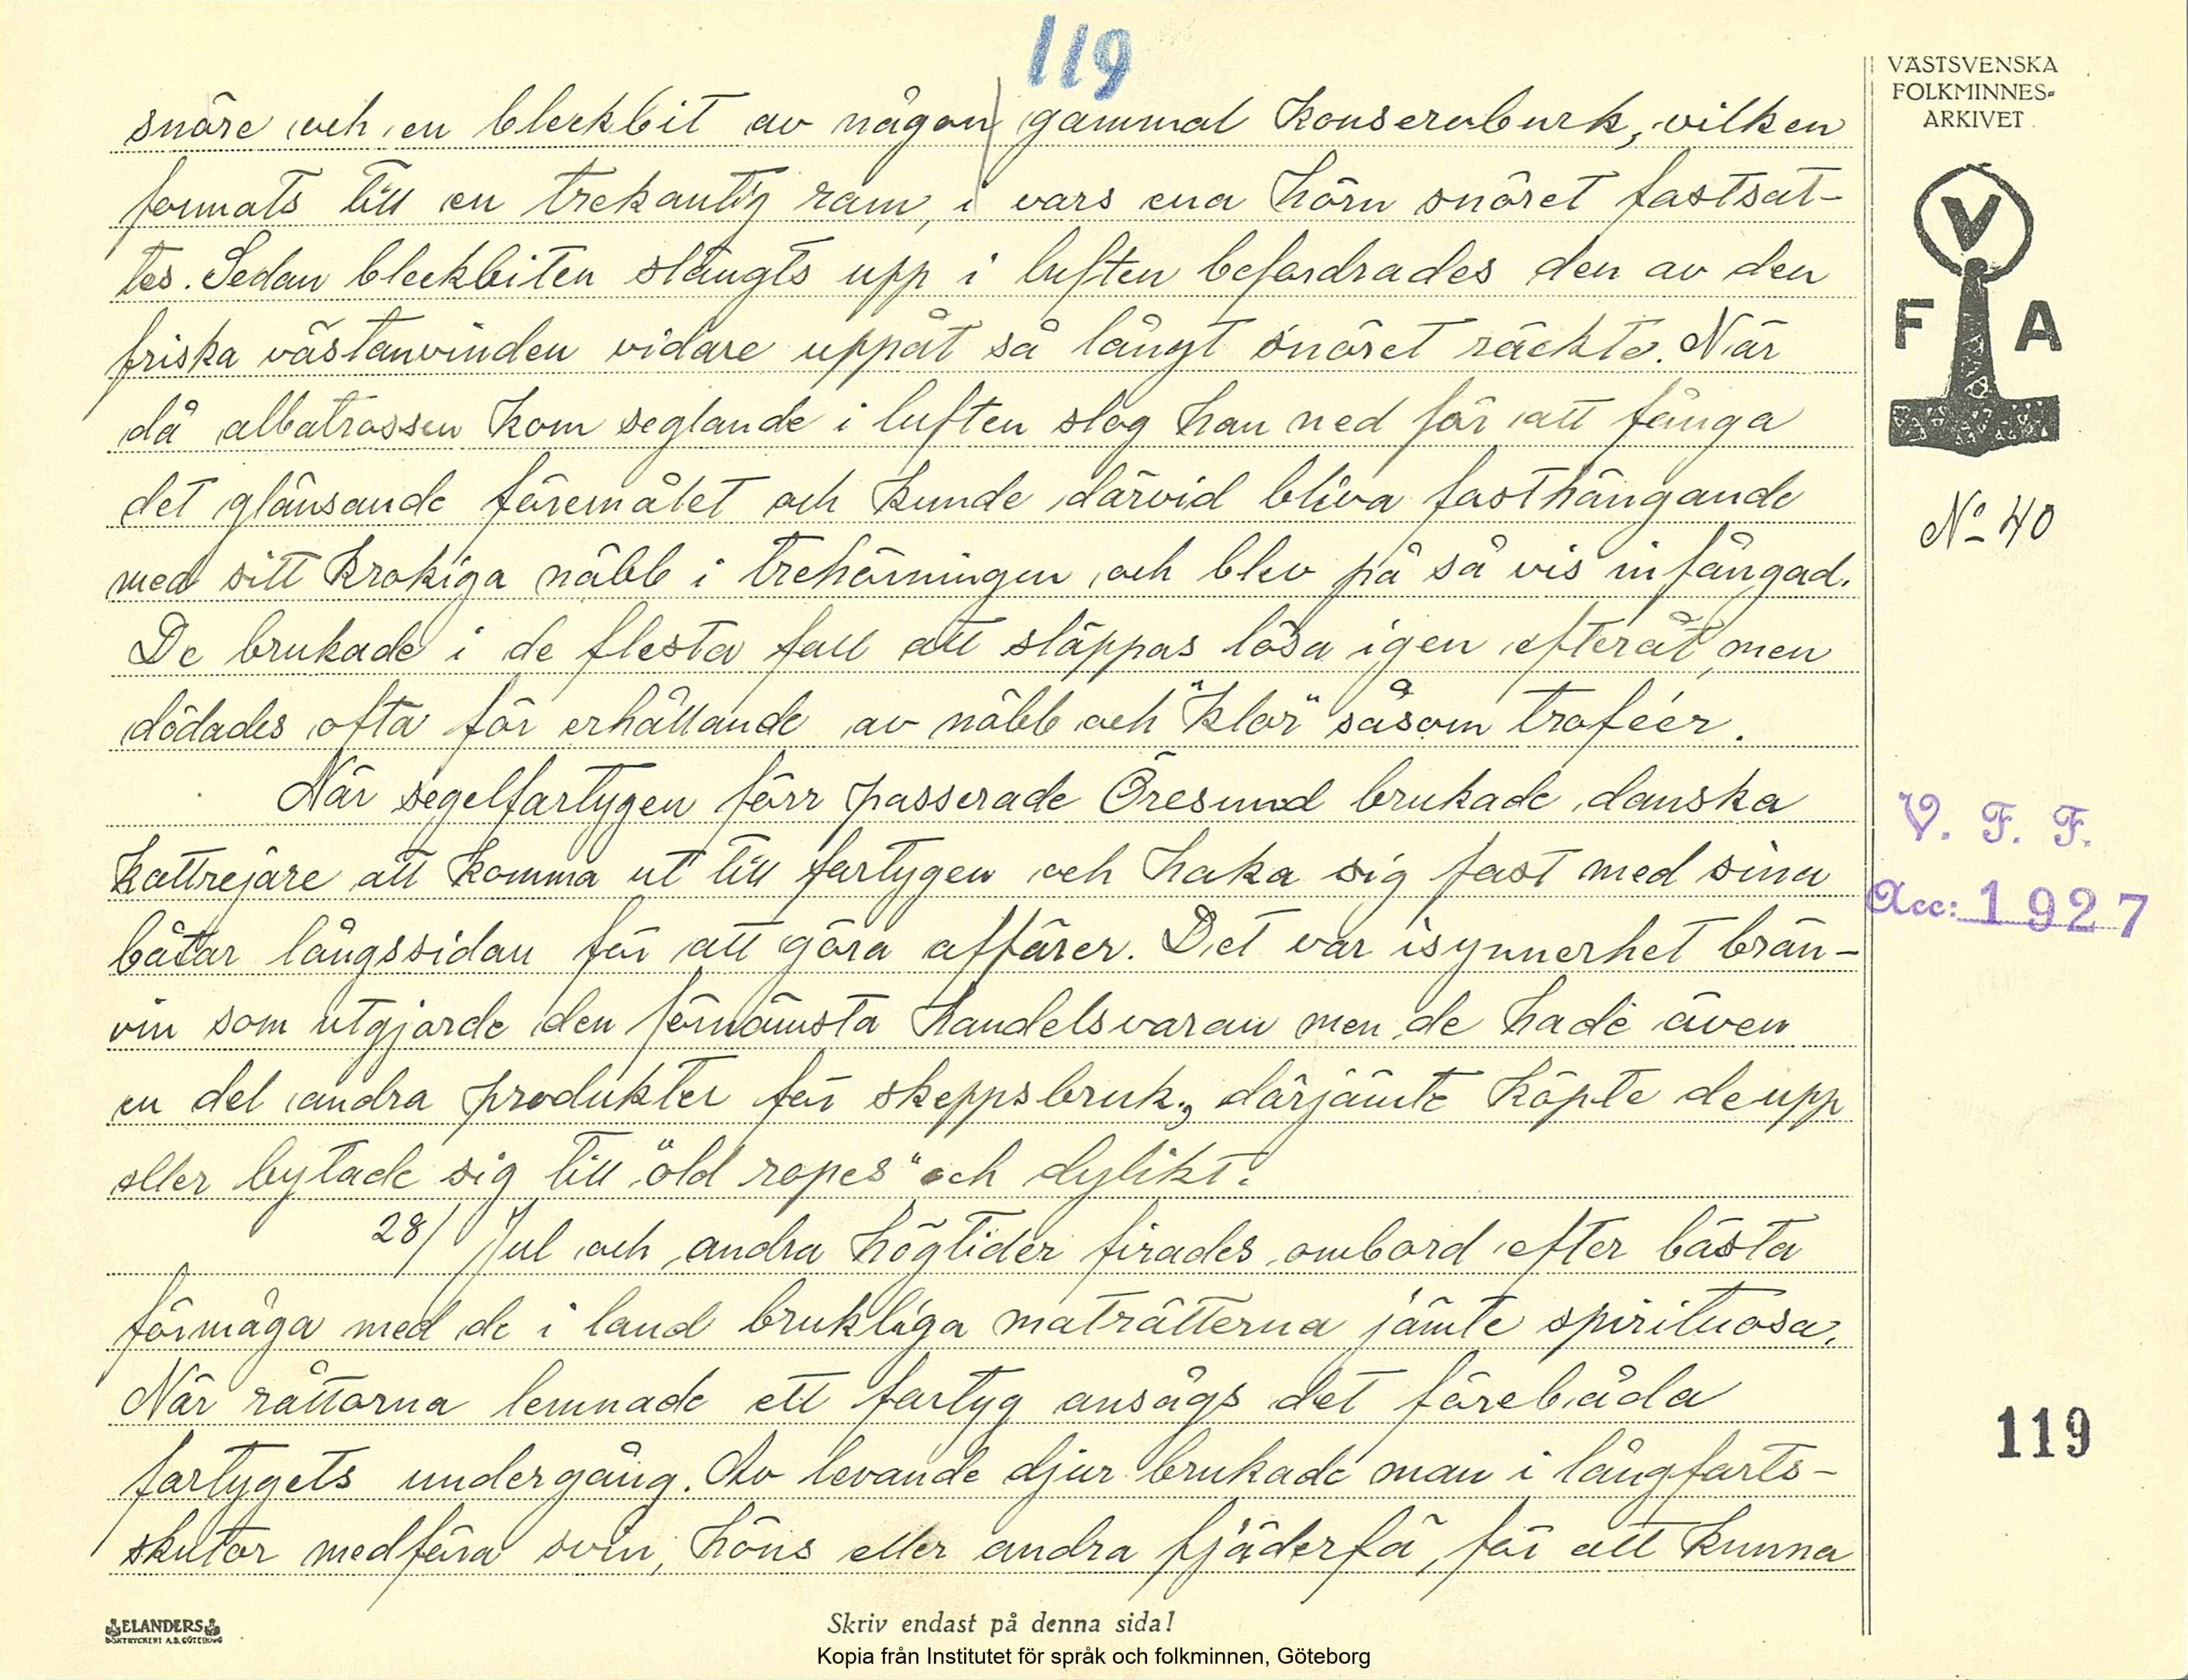 119
snöre och en bleckbit av någon gammal konservburk, vilken
formats till en trekantig ram, i vars ena hörn snöret fastsat-
tes. Sedan bleckbiten slängts upp i luften befordrades den av den
friska västanvinden vidare uppåt så långt snöret räckte. När
då albatrossen kom seglande i luften slog han ned för att fånga
det glänsande föremålet och kunde därvid bliva fasthängande
med sitt krokiga näbb i trehörningen och blev på så vis infångad.
De brukade i de flesta fall att släppas lösa igen efteråt, men
dödades ofta för erhållande av näbb och "klor" såsom troféer.
När segelfartygen förr passerade Öresund brukade danska
kattrejare att komma ut till fartygen och haka sig fast med sina
båtar långssidan för att göra affärer. Det var isynnerhet brän-
vin som utgjorde den förnämsta handelsvaran men de hade även
en del andra produkter för skeppsbruk, därjämte köpte de upp
eller bytade sig till "old ropes" och dylikt.
28/ Jul och andra högtider firades ombord efter bästa
förmåga med de i land brukliga maträtterna jämte spirituosa.
När råttorna lemnade ett fartyg ansågs det förebåda
fartygets undergång. Av levande djur brukade man i långfarts-
skutor medföra svin, höns eller andra fjäderfä, för att kunna
VÄSTSVENSKA
FOLKMINNES-
ARKIVET
V
F A
No 40
V. F. F.
Acc: 1927
119
ELANDERS
BOKTRYCKERI A.B. GÖTEBORG
Skriv endast på denna sida!
Kopia från Institutet för språk och folkminnen, Göteborg